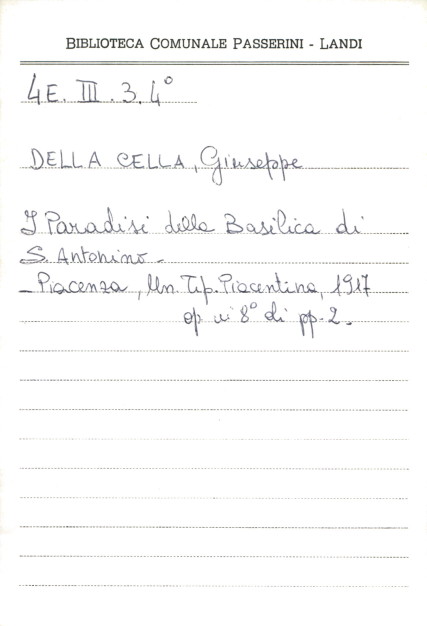 BIBLIOTECA COMUNALE PASSERINI - LANDI
4E. III. 3. 4°
DELLA CELLA, Giuseppe
I Paradisi della Basilica di
S. Antonino -
- Piacenza, Un. Tip. Piacentina, 1917
op in 8° di pp. 2.